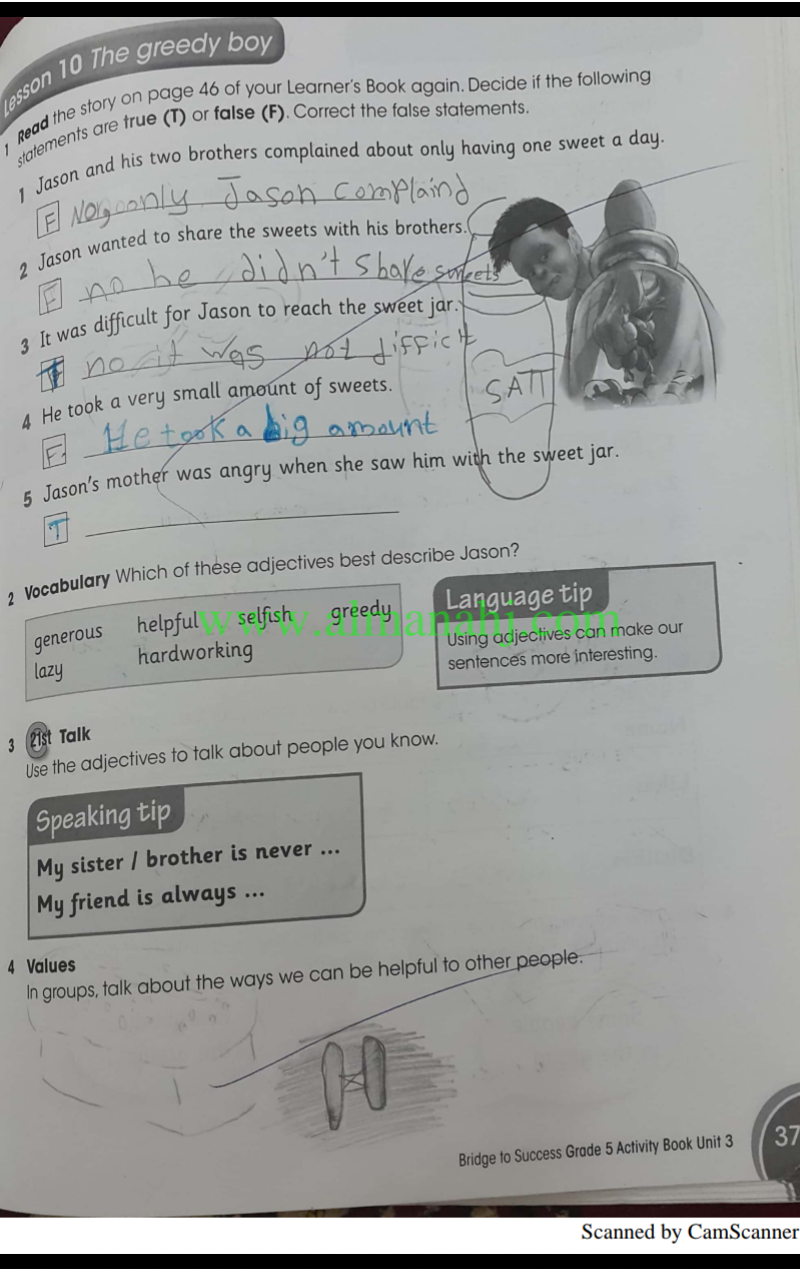 Lesson 10 The greedy boy
1 Read the story on page 46 of your Learner's Book again. Decide if the following
statements are true (T) or false (F). Correct the false statements.
1 Jason and his two brothers complained about only having one sweet a day.
F only Jason complaind
2 Jason wanted to share the sweets with his brothers.
F no he didn't share sweets
3 It was difficult for Jason to reach the sweet jar.
T no it was not difficit
SATT
4 He took a very small amount of sweets.
F He took a big amount
5 Jason's mother was angry when she saw him with the sweet jar.
T
2 Vocabulary Which of these adjectives best describe Jason?
generous helpful selfish greedy
lazy hardworking
Language tip
Using adjectives can make our
sentences more interesting.
www.almanahj.com
3 21st Talk
Use the adjectives to talk about people you know.
Speaking tip
My sister / brother is never ...
My friend is always ...
4 Values
In groups, talk about the ways we can be helpful to other people.
Bridge to Success Grade 5 Activity Book Unit 3
37
Scanned by CamScanner